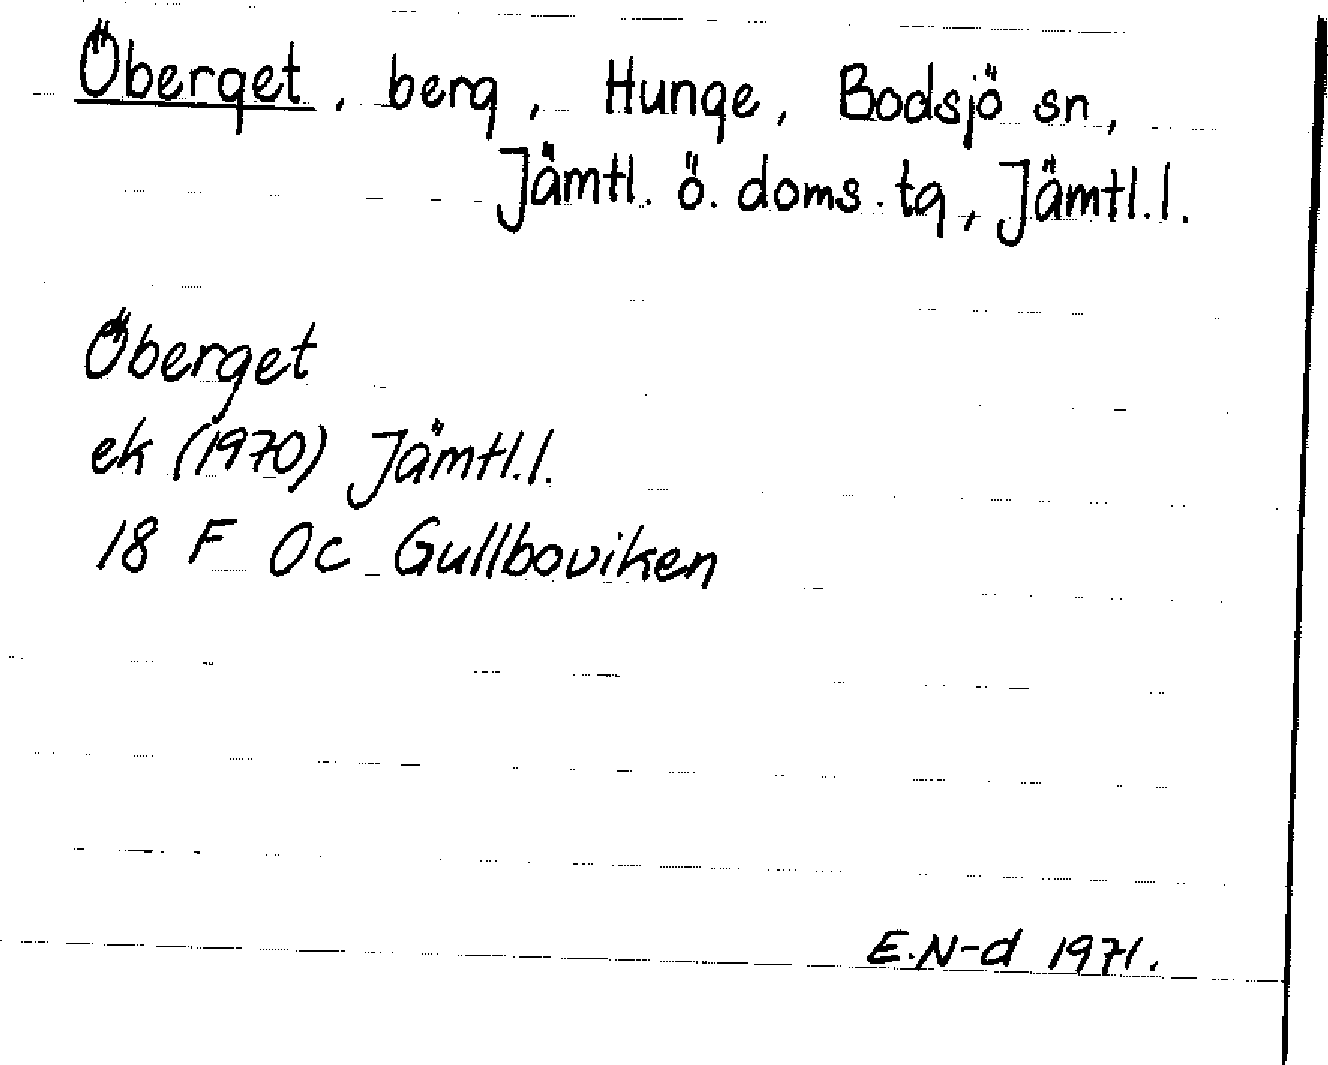 Öberget, berg, Hunge, Bodsjö sn,
Jämtl. ö. doms. tg, Jämtl. l.
Öberget
ek (1970) Jämtl. l.
18 F 0c Gullboviken
E.N-d 1971.